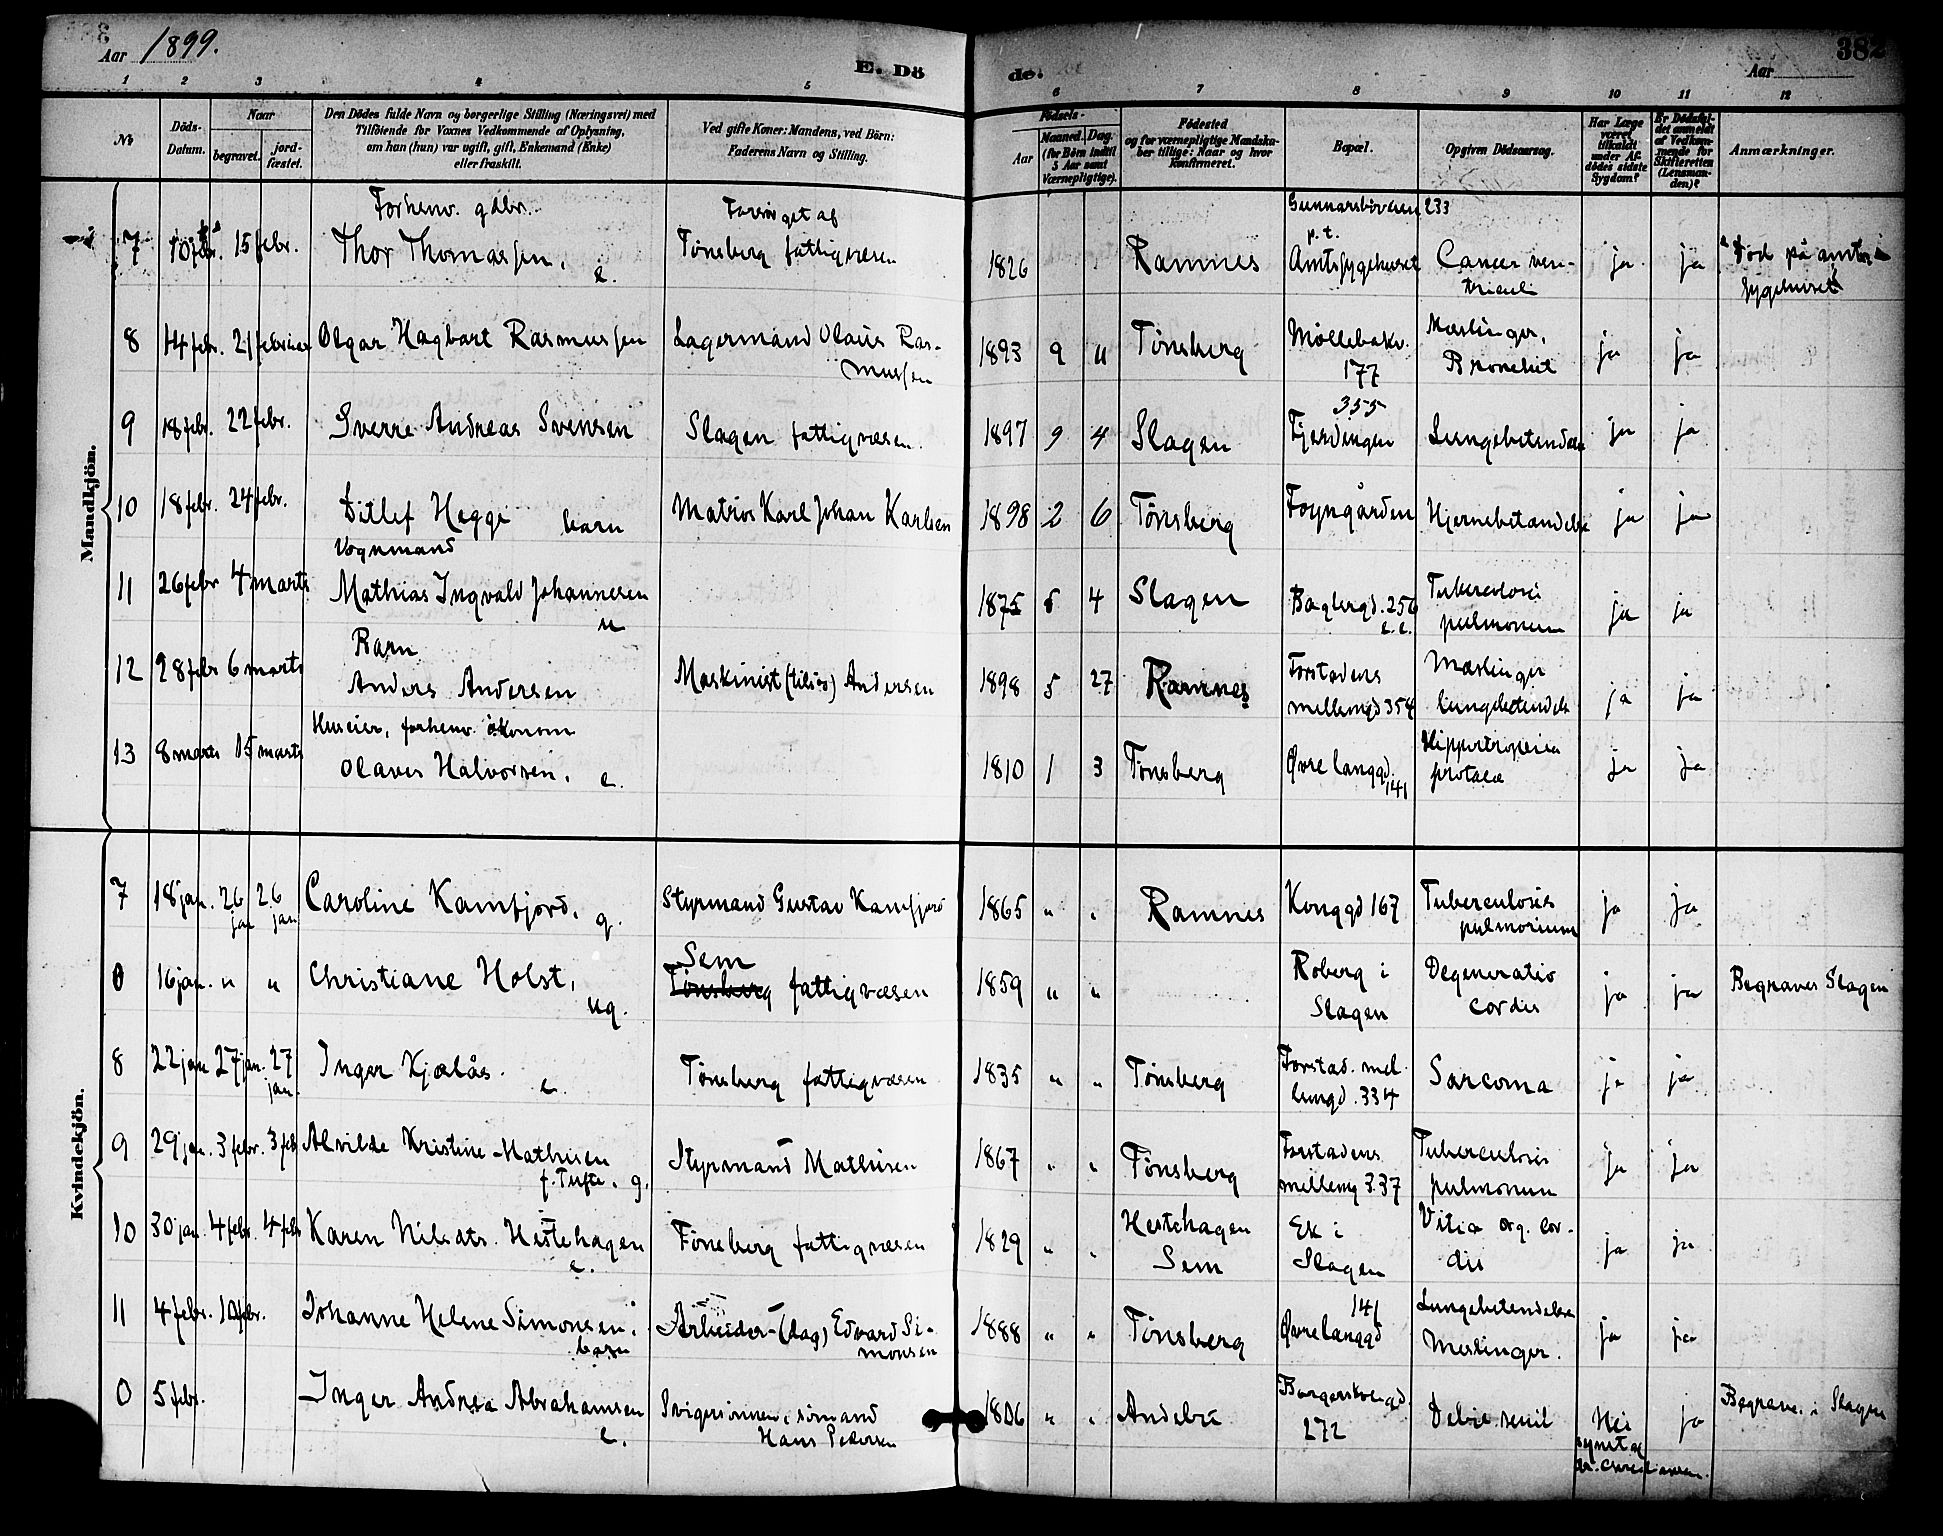 Aar 1899.
E. Dö
de.
Aar
382
1 2 3 4 5 6 7 8 9 10 11 12
No
Döds-Datum.
Naar
begravet.
jord-fæstet.
Den Dödes fulde Navn og borgerlige Stilling (Næringsvei) med
Tilföiende for Voxnes Vedkommende af Oplysning,
om han (hun) var ugift, gift, Enkemand (Enke)
eller fraskilt.
Ved gifte Koner: Mandens, ved Börn:
Faderens Navn og Stilling.
Födsels-
Aar
Maaned. Dag.
(for Börn indtil
5 Aar samt
Værnepligtige).
Födested
og for værnepligtige Mandska-
ber tillige: Naar og hvor
konfirmeret.
Bopæl.
Opgiven Dödsaarsag.
Har Læge
været
tilkaldt
under Af-
dödes sidste
Sygdom?
Er Dödsfal-
det anmeldt
af Vedkom-
mende for
Skifteretten
(Lensman-
den)?
Anmærkninger.
Mandkjön.
Forhenv. gdbr. Forsörget af Gunnarsböveien 233
p.t.
7 10 febr. 15 febr. Thor Thomassen. e. Tönsberg fattigvæsen 1826 Ramnes Amtssygehuset Cancer ven-
triculi ja ja Död på amts-
sygehuset
8 14 febr. 21 februar Olgar Hagbart Rasmussen Lagermand Olaus Ras-
mussen 1893 9 11 Tönsberg Möllebakv.
177 Mæslinger,
Bronchit ja ja
9 18 febr. 22 febr. Sverre Andreas Svensen Slagen fattigvæsen. 1897 9 4 Slagen 355
Fjerdingen Lungebetændelse ja ja
10 18 febr. 24 febr. Ditlef Hegge barn Matros Karl Johan Karlsen 1898 2 6 Tönsberg Foyngården Hjernebetændelse ja ja
Vognmand
11 26 febr 4 marts Mathias Ingvald Johannesen u 1875 5 4 Slagen Baglergd. 256
c.c. Tuberculosis
pulmonum ja ja
Barn
12 28 febr 6 marts Anders Andersen Maskinist (tilsös) Andersen 1898 5 27 Ramnes Forstadens
mellemgd 354 Mæslinger
lungebetændelse ja ja
Huseier, forhenv. ökonom
13 8 marts 15 marts Olaves Halvorsen. e. 1810 1 3 Tönsberg Övre langgd.
141 ja ja
Kvindekjön.
7 18 jan. 26 jan 26 jan Caroline Kamfjord. g. Styrmand Gustav Kamfjord 1865 " " Ramnes Konggd 167 Tuberculosis
pulmonum ja ja
0 16 jan. " " Christiane Holst, ug. Sem
Tönsberg fattigvæsen 1859 " " Roberg i
Slagen Degeneratio
cordis ja ja Begraves Slagen
8 22 jan 27 jan. 27 jan. Inger Kjælås. e. Tönsberg fattigvæsen 1835 " " Tönsberg Forstad. mel-
lemgd. 334 Sarcoma ja ja
9 29 jan. 3 febr. 3 feb Alvilde Kristine Mathisen
f. Tufte. g. Styrmand Mathisen 1867 " " Tönsberg Forstadens
mellemg 337 Tuberculosis
pulmonum ja ja
10 30 jan. 4 febr. 4 febr Karen Nilsdtr. Hestehagen
e. Tönsberg fattigvæsen 1829 " " Hestehagen
Sem Ek i
Slagen Vitia org. cor-
dis ja ja
11 4 febr. 10 febr. Johanne Helene Simonsen.
barn Arbeider- (dag) Edvard Si-
monsen 1888 " " Tönsberg 141
Övre langgd Lungebetændelse
Meslinger. ja ja
0 5 febr. Inger Andrea Abrahamsen
e. Svigersönnen sömand
Hans Pedersen 1806 " " Andebu
272 Debil. senil Nei
synet af
dr. ja Begrave. i Slagen